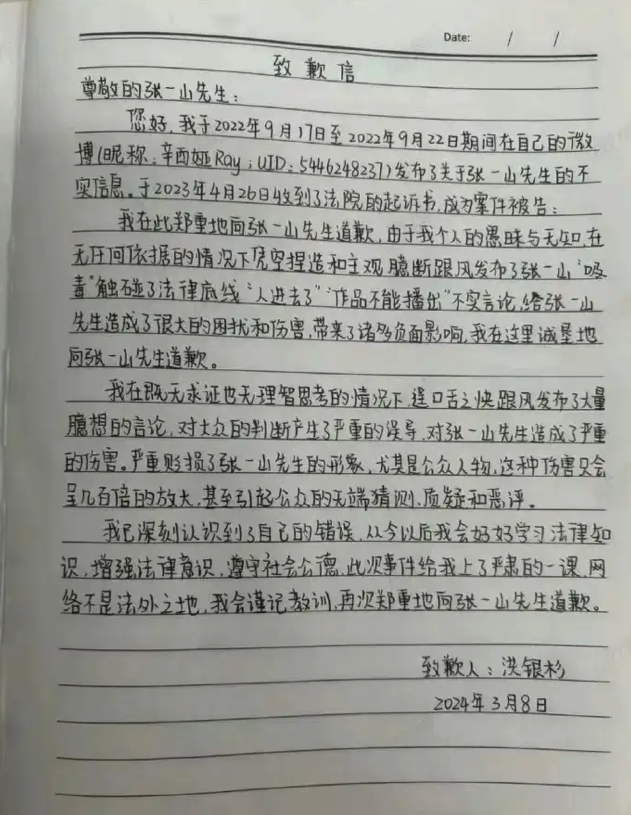 Date: / /
致歉信
尊敬的张一山先生：
您好，我于2022年9月17日至2022年9月22日期间在自己的微
博(昵称：辛西娅Ray；UID：5446248237)发布了关于张一山先生的不
实信息。于2023年4月26日收到了法院的起诉书，成为案件被告：
我在此郑重地向张一山先生道歉，由于我个人的愚昧与无知，在
无任何依据的情况下凭空捏造和主观臆断跟风发布了张一山“吸
毒”触碰了法律底线“人进去了”“作品不能播出”不实言论，给张一山
先生造成了很大的困扰和伤害，带来了诸多负面影响，我在这里诚恳地
向张一山先生道歉。
我在既无求证也无理智思考的情况下，逞口舌之快跟风发布了大量
臆想的言论，对大众的判断产生了严重的误导，对张一山先生造成了严重
的伤害。严重贬损了张一山先生的形象，尤其是公众人物，这种伤害只会
呈几百倍的放大，甚至引起公众的无端猜测、质疑和恶评。
我已深刻认识到了自己的错误，从今以后我会好好学习法律知
识，增强法律意识，遵守社会公德，此次事件给我上了严肃的一课，网
络不是法外之地，我会谨记教训，再次郑重地向张一山先生道歉。
致歉人：洪银杉
2024年3月8日